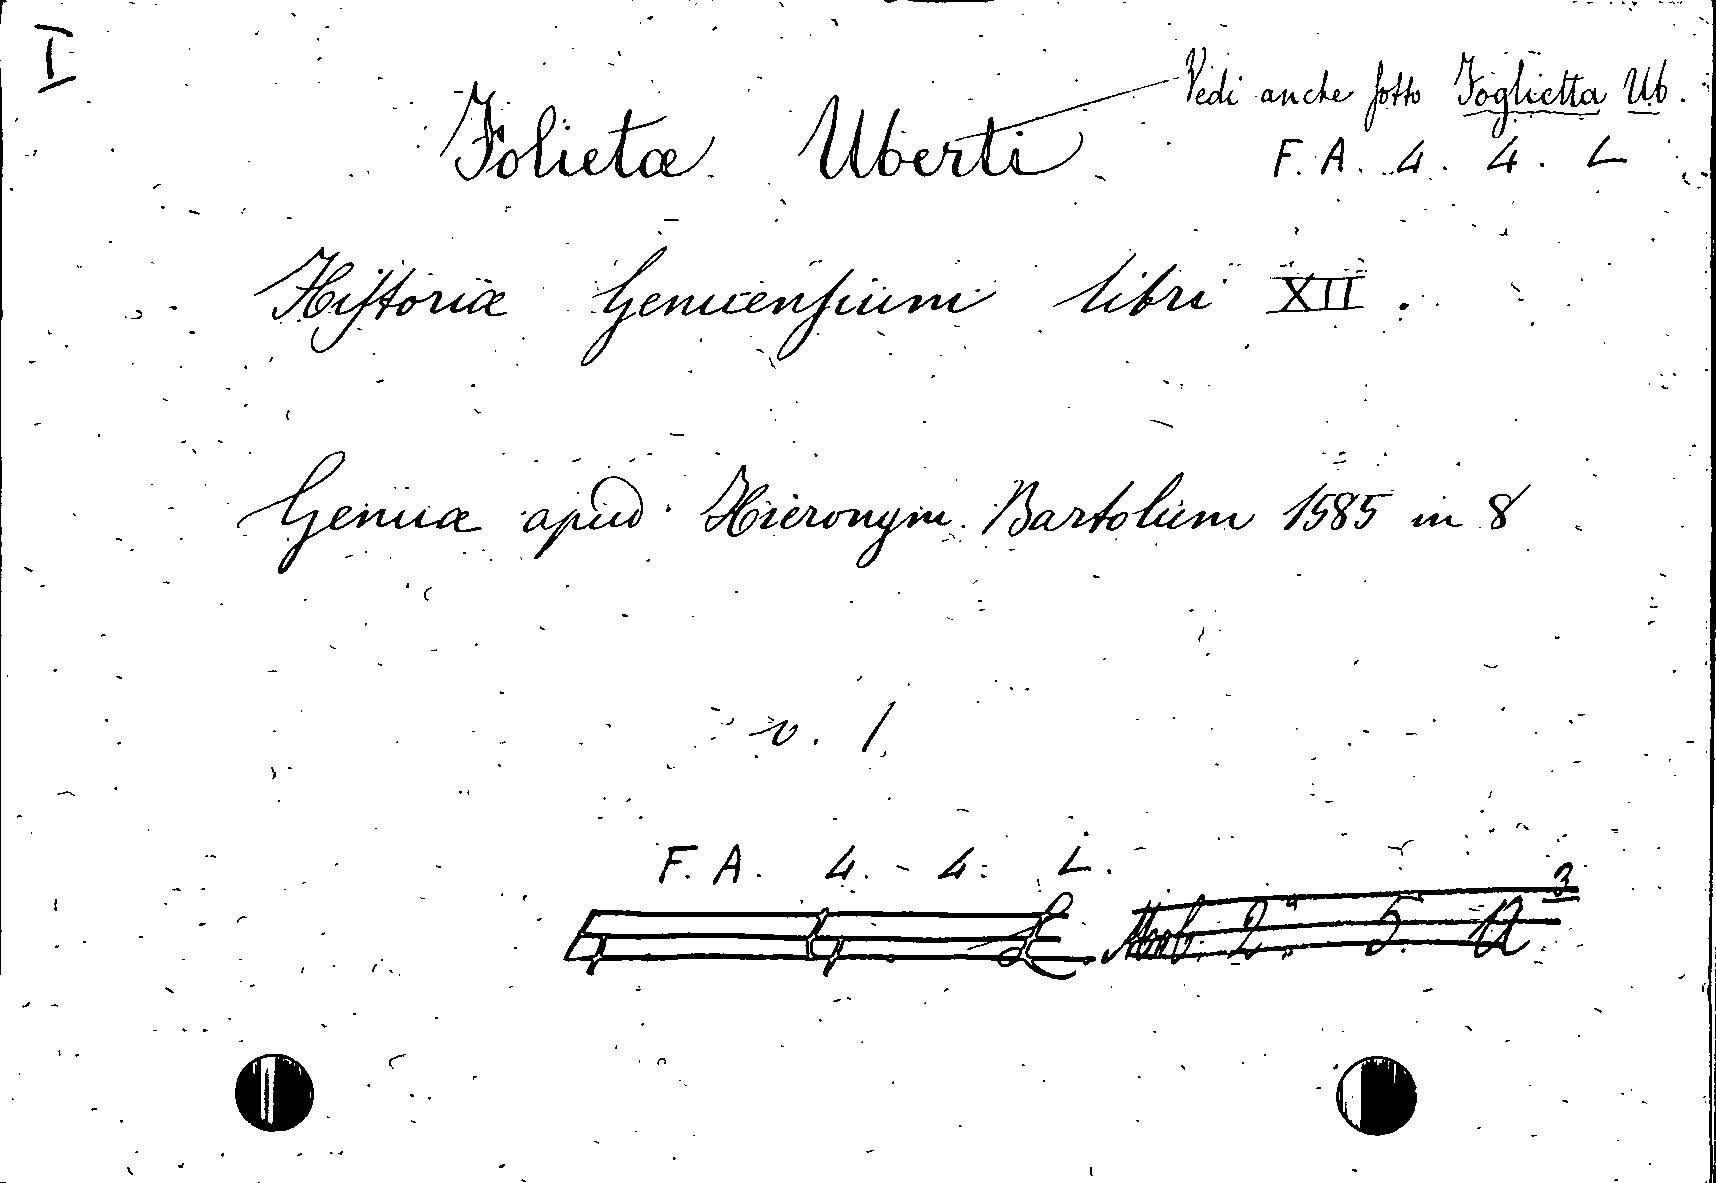 I
Vedi anche sotto Foglietta Ub.
Folietæ Uberti
F. A. 4. 4. L
Hiſtoriæ Genuenſium libri XII.
Genuæ apud Hieronym. Bartolum 1585 in 8
v. 1
F. A. 4. - 4. L.
4 4 L. Mob. 2.ª 5. A 3